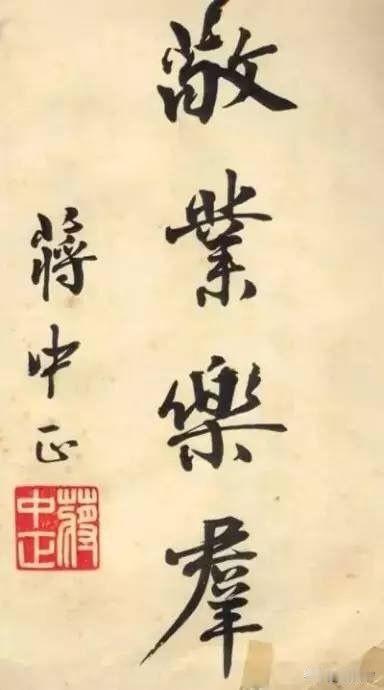 敬業樂羣
蔣中正
蔣中正